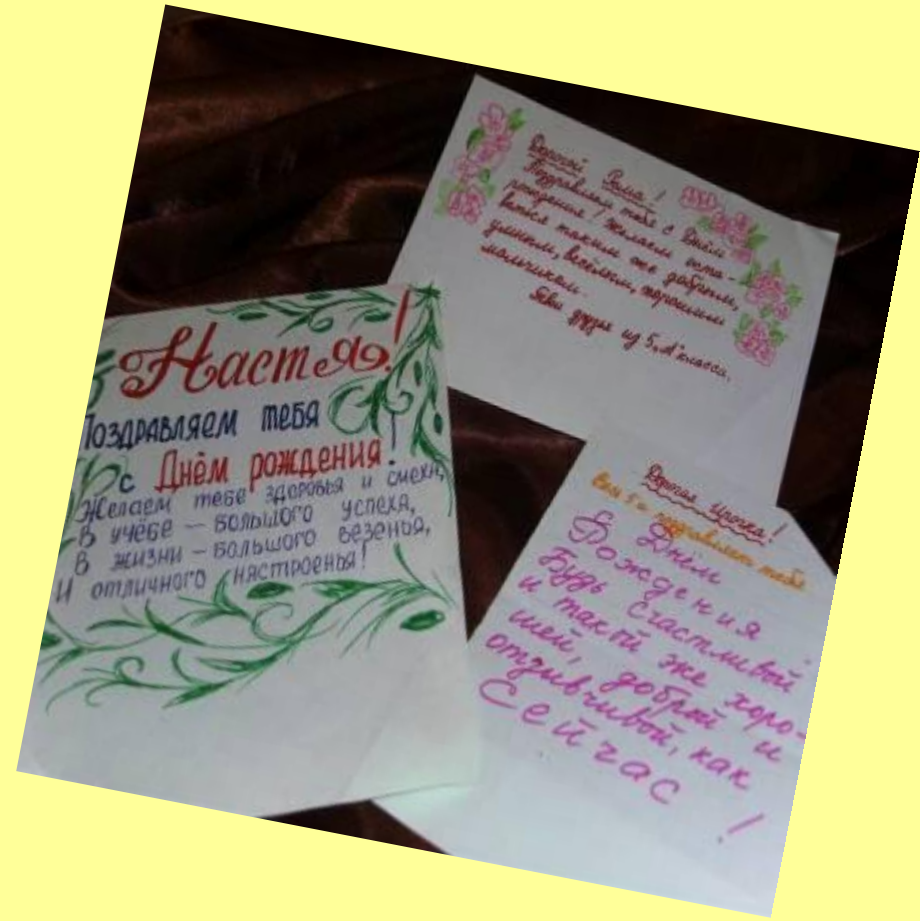 Настя!
Поздравляем тебя
с Днём рождения!
Желаем тебе здоровья и смеха,
В учёбе – большого успеха,
В жизни – большого везенья,
И отличного настроенья!
Дорогой Рома!
Поздравляем тебя с Днём
рождения! Желаем оста-
ваться таким же добрым,
умным, весёлым, хорошим
мальчиком.
Твои друзья из 5 „А" класса.
Дорогая Ирочка!
Весь 5 поздравляет тебя
с Днём
Рождения
Будь Счастливой
и такой же хоро-
шей, доброй и
отзывчивой, как
Сейчас!